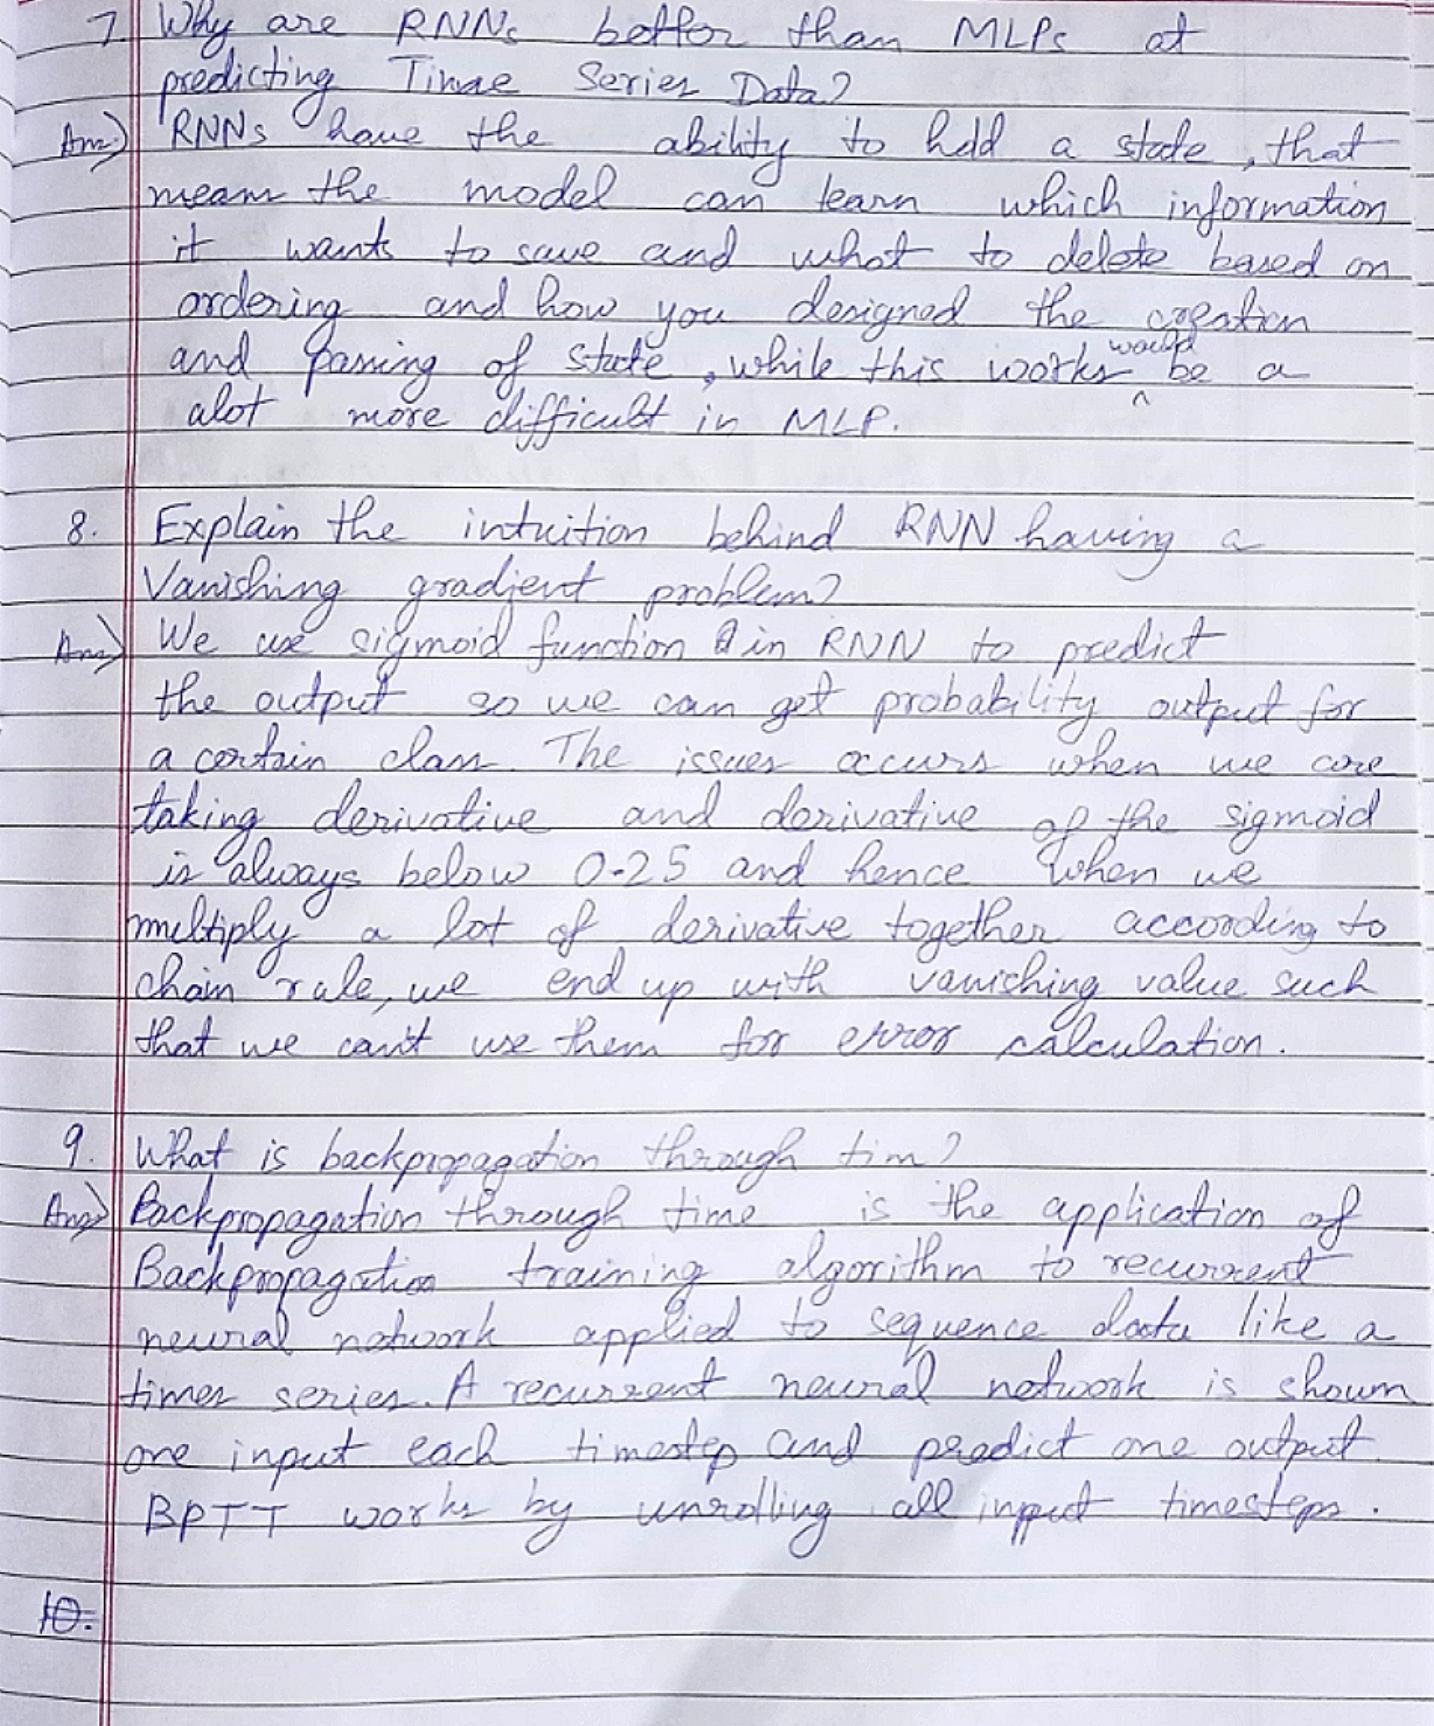 7. Why are RNNs better than MLPs at
predicting Time Series Data?
Ans) RNNs have the ability to hold a state, that
means the model can learn which information
it wants to save and what to delete based on
ordering and how you designed the creation
and passing of state, while this works would be a
alot more difficult in MLP.
8. Explain the intuition behind RNN having a
Vanishing gradient problem?
Ans) We use sigmoid function in RNN to predict
the output so we can get probability output for
a certain class. The issues occurs when we are
taking derivative and derivative of the sigmoid
is always below 0.25 and hence when we
multiply a lot of derivative together according to
chain rule, we end up with vanishing value such
that we can't use them for error calculation.
9. What is backpropagation through tim?
Ans) Backpropagation through time is the application of
Backpropagation training algorithm to recurrent
neural network applied to sequence data like a
times series. A recurrent neural network is shown
one input each timestep and predict one output.
BPTT works by unrolling all input timesteps.
10.